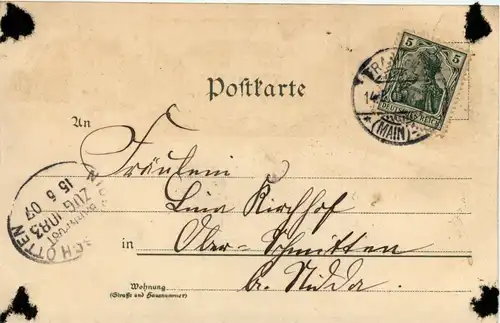 Postkarte
5 5
DEUTSCHES REICH
(MAIN)
An
Fräulein
Lina Kirchhof
in Ober-Schmitten
b. Nidda
Wohnung
(Straße und Hausnummer)
SCHOTTEN
ZUG 1083
15 5 07